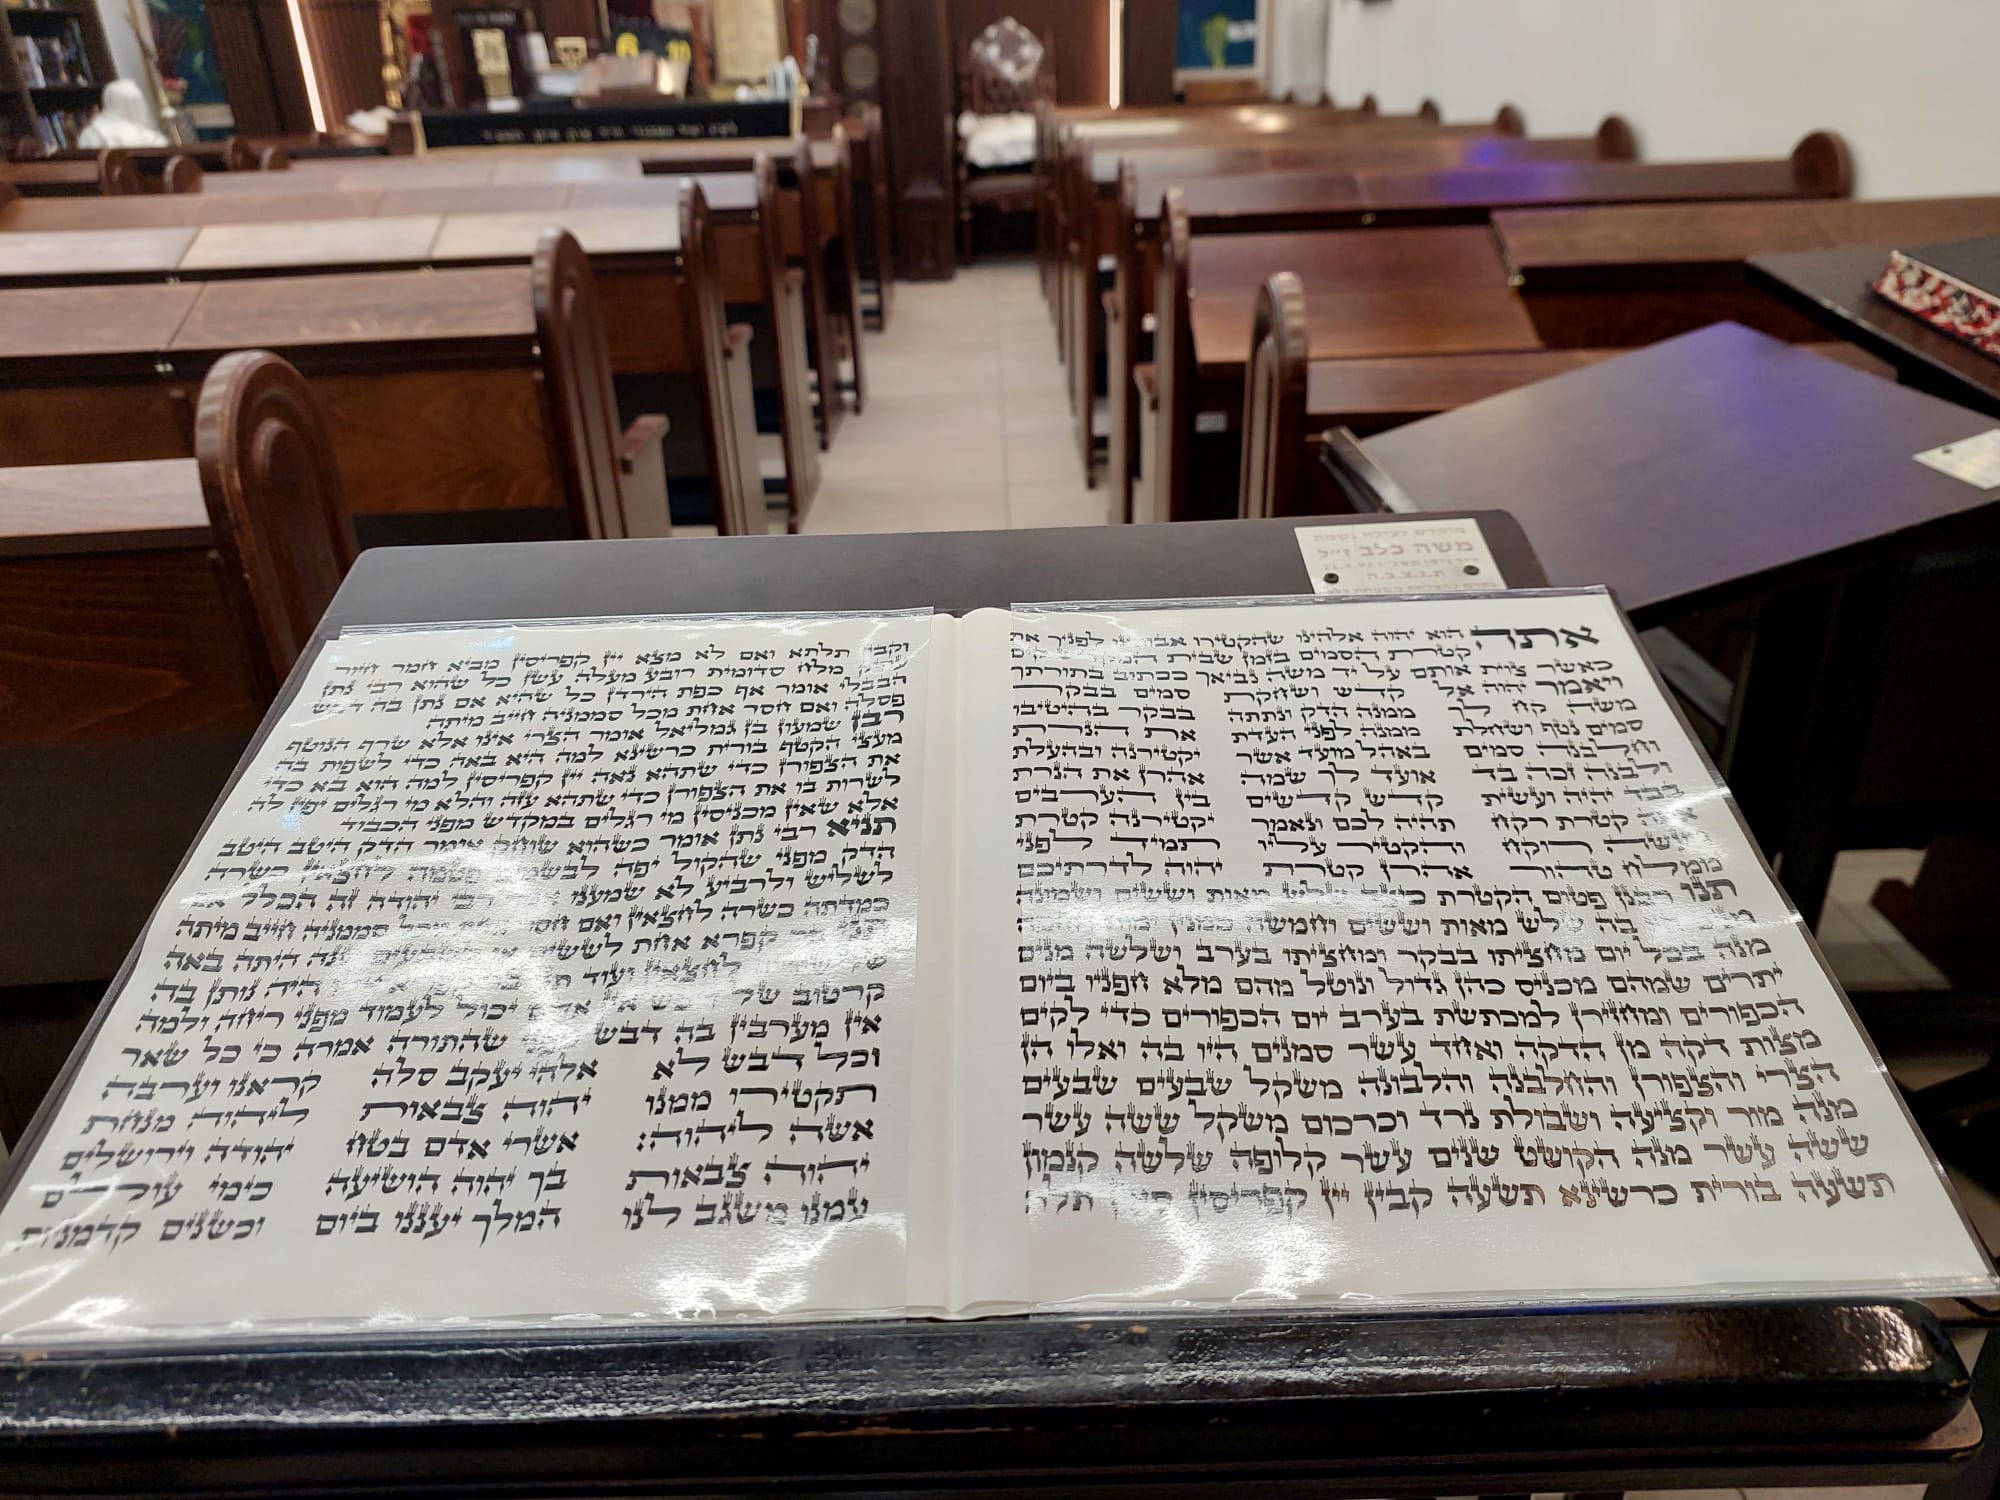 משה כלב ז״ל
ת.נ.צ.ב.ה
אתה הוא יהוה אלהינו שהקטירו אבותינו לפניך את
קטרת הסמים בזמן שבית המקדש קים
כאשר צוית אותם על יד משה נביאך ככתוב בתורתך
ויאמר יהוה אל קדש ושחקת סמים בבקר
משה קח לך ממנה הדק ונתתה בבקר בהיטיבו
סמים נטף ושחלת ממנה לפני העדת את הנרת
וחלבנה סמים באהל מועד אשר יקטירנה ובהעלת
ולבנה זכה בד אועד לך שמה אהרן את הנרת
בבד יהיה ועשית קדש קדשים בין הערבים
אתה קטרת רקח תהיה לכם ונאמר יקטירנה קטרת
מעשה רוקח והקטיר עליו תמיד לפני
ממלח טהור אהרן קטרת יהוה לדרתיכם
תנו רבנן פטום הקטרת כיצד שלש מאות וששים ושמונה
בה שלש מאות וששים וחמשה כמנין
מנה בכל יום מחציתו בבקר ומחציתו בערב ושלשה מנים
יתרים שמהם מכניס כהן גדול ונוטל מהם מלא חפניו ביום
הכפורים ומחזירן למכתשת בערב יום הכפורים כדי לקים
מצות דקה מן הדקה ואחד עשר סמנים היו בה ואלו הן
הצרי והצפורן והחלבנה והלבונה משקל שבעים שבעים
מנה מור וקציעה ושבולת נרד וכרכום משקל ששה עשר
ששה עשר מנה הקושט שנים עשר קלופה שלשה קנמון
תשעה בורית כרשינא תשעה קבין יין קפריסין סאין תלת
וקבין תלתא ואם לא מצא יין קפריסין מביא חמר חיור
עתיק מלח סדומית רובע מעלה עשן כל שהוא רבי נתן
הבבלי אומר אף כפת הירדן כל שהיא אם נתן בה דבש
פסלה ואם חסר אחת מכל סממניה חייב מיתה
רבן שמעון בן גמליאל אומר הצרי אינו אלא שרף הנוטף
מעצי הקטף בורית כרשינא למה היא באה כדי לשפות בה
את הצפורן כדי שתהא נאה יין קפריסין למה הוא בא כדי
לשרות בו את הצפורן כדי שתהא עזה והלא מי רגלים יפין לה
אלא שאין מכניסין מי רגלים במקדש מפני הכבוד
תניא רבי נתן אומר כשהוא שוחק אומר הדק היטב היטב
הדק מפני שהקול יפה לבשמים פטמה לחצאין כשרה
לשליש ולרביע לא שמענו רבי יהודה זה הכלל אם
כמדתה כשרה לחצאין ואם חסר מכל סממניה חייב מיתה
בר קפרא אחת לששים שבעים שנה היתה באה
של לחצאין ועוד בר קפרא היה נותן בה
קרטוב של דבש אין אדם יכול לעמוד מפני ריחה ולמה
אין מערבין בה דבש מפני שהתורה אמרה כי כל שאר
וכל דבש לא אלהי יעקב סלה קראנו וערבה
תקטירו ממנו יהוה צבאות ליהוה מנחת
אשה ליהוה: אשרי אדם בטח יהודה וירושלים
יהוה צבאות בך יהוה הושיעה כימי עולם
עמנו משגב לנו המלך יעננו ביום וכשנים קדמניות